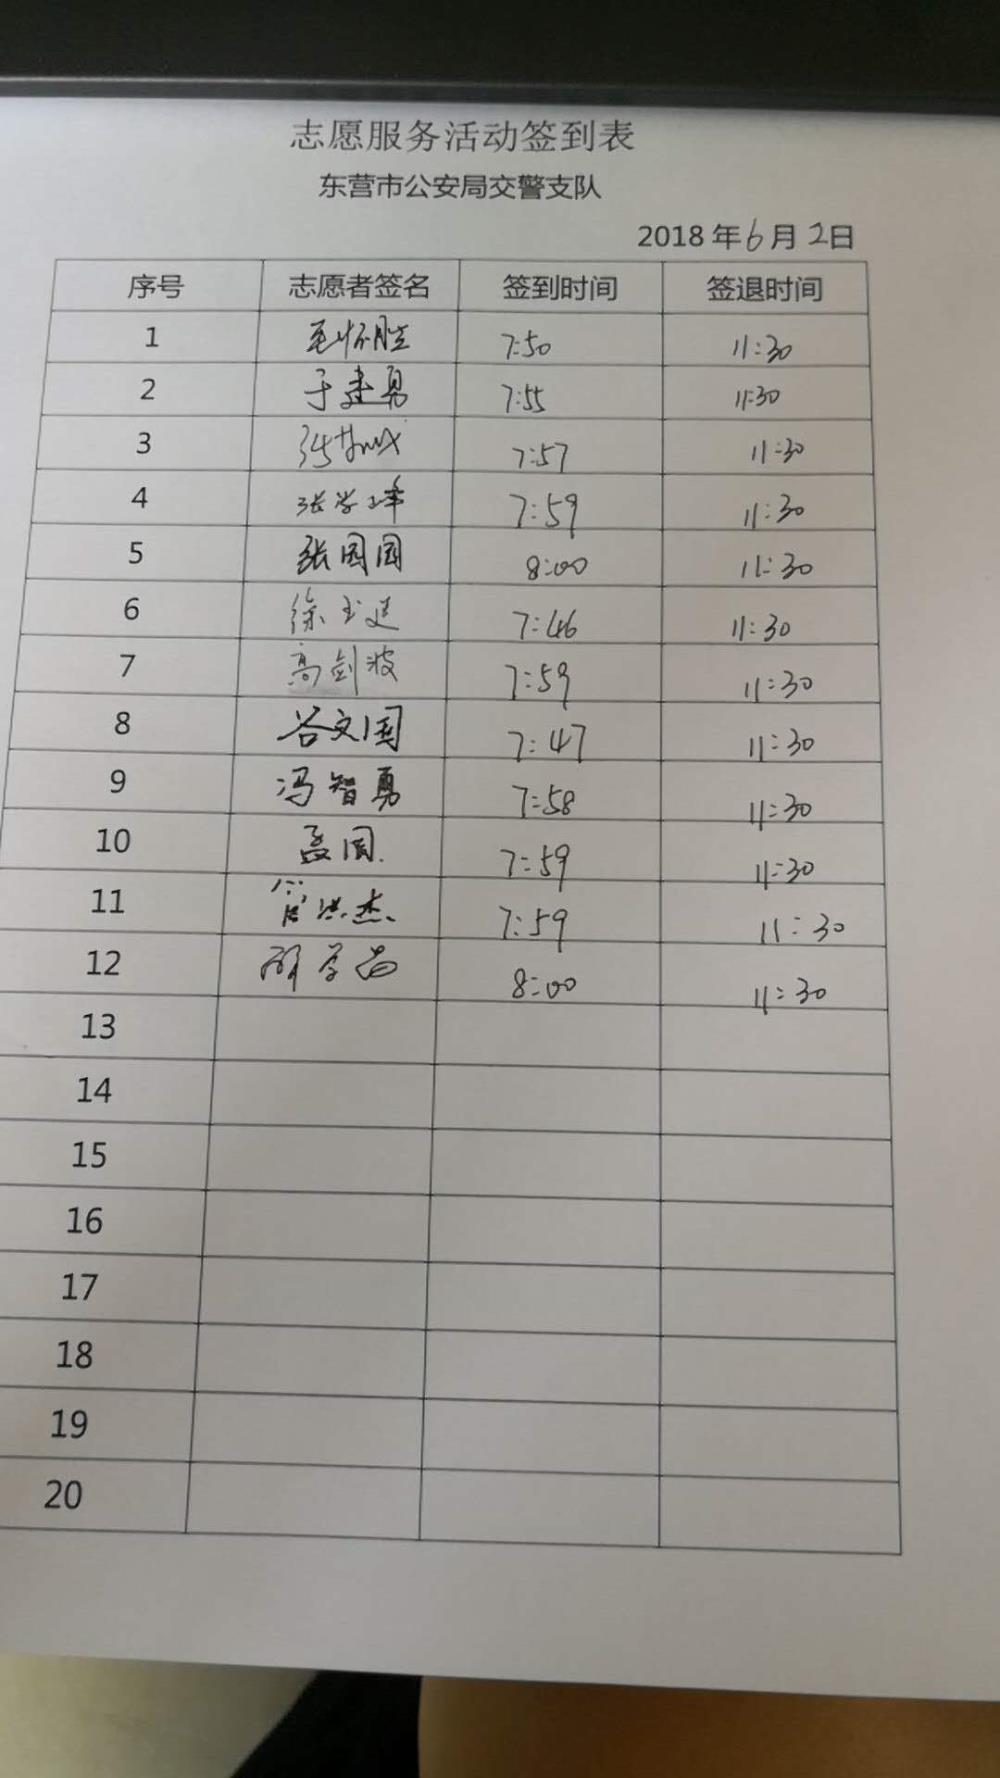 志愿服务活动签到表
东营市公安局交警支队
2018 年 6 月 2 日
序号 志愿者签名 签到时间 签退时间
1 7:50 11:30
2 于建勇 7:55 11:30
3 7:57 11:30
4 张学峰 7:59 11:30
5 张园园 8:00 11:30
6 徐玉廷 7:46 11:30
7 高剑波 7:59 11:30
8 谷文国 7:47 11:30
9 冯智勇 7:58 11:30
10 孟周 7:59 11:30
11 管洪杰 7:59 11:30
12 8:00 11:30
13
14
15
16
17
18
19
20